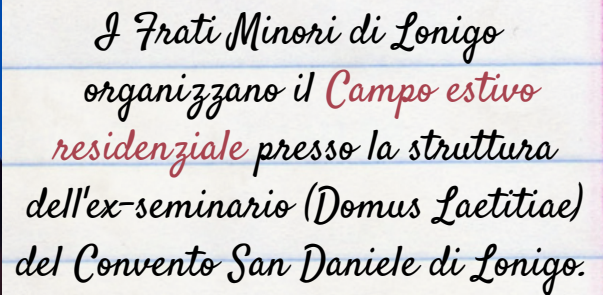 I Frati Minori di Lonigo
organizzano il Campo estivo
residenziale presso la struttura
dell'ex-seminario (Domus Laetitiae)
del Convento San Daniele di Lonigo.